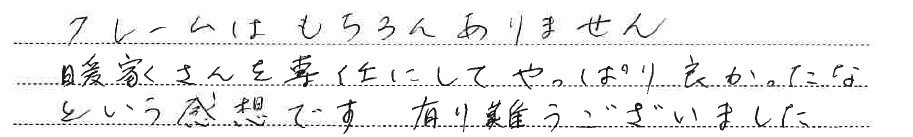 クレームはもちろんありません
暖家くさんを専任にしてやっぱり良かったな
という感想です 有り難うございました